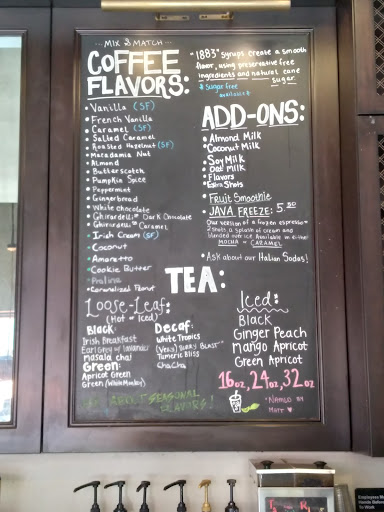 MIX & MATCH
COFFEE
FLAVORS:
Vanilla (SF)
French Vanilla
Caramel (SF)
Salted Caramel
Roasted Hazelnut (SF)
Macadamia Nut
Almond
Butterscotch
Pumpkin Spice
Peppermint
Gingerbread
White chocolate
Ghirardelli® Dark Chocolate
Ghirardelli® Caramel
Irish Cream (SF)
Coconut
Amaretto
Cookie Butter
Praline
Caramelized Peanut
"1883" syrups create a smooth
flavor, using preservative free
ingredients and natural cane
sugar.
* Sugar free
available *
ADD-ONS:
Almond Milk
Coconut Milk
Soy Milk
Oat Milk
Flavors
Extra Shots
Fruit Smoothie
JAVA FREEZE: 5.50
Our version of a frozen espresso
2 shots, a splash of cream and
blended over ice. Available in either
MOCHA or CARAMEL
Ask about our Italian Sodas!
TEA:
Loose-Leaf:
(Hot or Iced)
Black:
Irish Breakfast
Earl Grey w/ lavender
Masala chai
Green:
Apricot Green
Green (White Monkey)
Decaf:
White Tropics
(Very) Berry Blast
Turmeric Bliss
ChaCha
Iced:
Black
Ginger Peach
Mango Apricot
Green Apricot
16oz, 24oz, 32oz
ABOUT SEASONAL
FLAVORS!
Employees Must